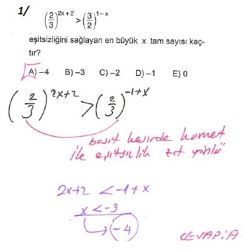 1/
(2/3)^2x+2 > (3/2)^1-x
eşitsizliğini sağlayan en büyük x tam sayısı kaç-
tır?
A) -4 B) -3 C) -2 D) -1 E) 0
(2/3)^2x+2 > (2/3)^-1+x
basit kesirde kuvvet
ile eşitsizlik zıt yönlü
2x+2 < -1+x
x < -3
-4
CEVAP: A